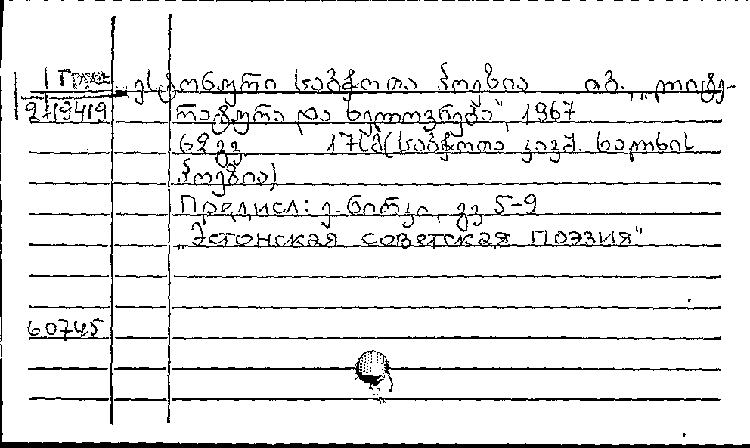 1 Груз. ესტონური საბჭოთა პოეზია თბ. „ლიტე-
2/19419 რატურა და ხელოვნება", 1967
62 გვ 17სმ (საბჭოთა კავშ. ხალხის
პოეზია)
Предисл: ე. ნირკი, გვ 5-9
„Эстонская советская поэзия"
60745